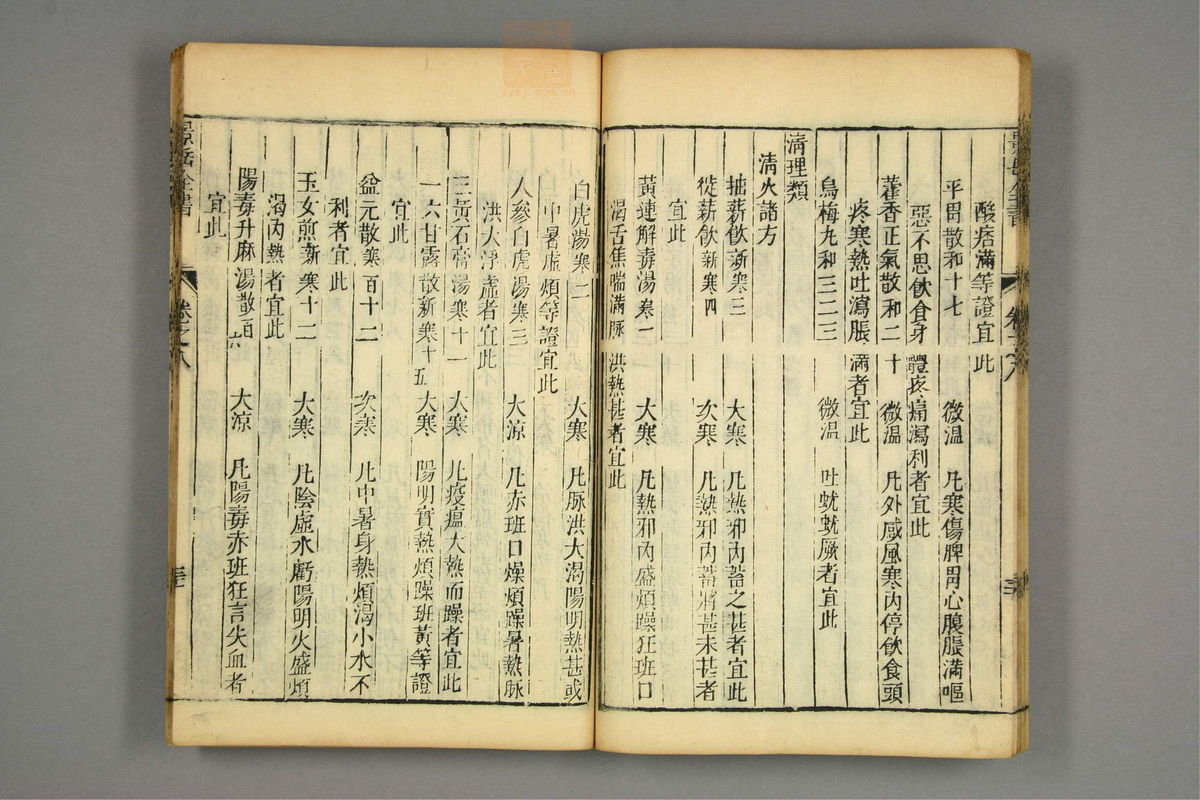 景岳全書
卷之八
酸痞滿等證宜此
平胃散和十七 微温 凡寒傷脾胃心腹脹滿嘔
惡不思飲食身體疼痛瀉利者宜此
藿香正氣散和二十 微温 凡外感風寒內停飲食頭
疼寒熱吐瀉脹滿者宜此
烏梅丸和三二三 微温 吐蚘蚘厥者宜此
清理類
清火諸方
抽薪飲新寒三 大寒 凡熱邪內蓄之甚者宜此
徙薪飲新寒四 次寒 凡熱邪內蓄將甚未甚者
宜此
黃連解毒湯寒一 大寒 凡熱邪內盛煩躁狂班口
渴舌焦喘滿脉洪熱甚者宜此
白虎湯寒二 大寒 凡脉洪大渴陽明熱甚或
中暑虛煩等證宜此
人參白虎湯寒三 大涼 凡赤班口燥煩躁暑熱脉
洪大浮虛者宜此
三黃石膏湯寒十一 大寒 凡疫瘟大熱而躁者宜此
一六甘露散新寒十五 大寒 陽明實熱煩躁班黃等證
宜此
益元散寒百十二 次寒 凡中暑身熱煩渴小水不
利者宜此
玉女煎新寒十二 大寒 凡陰虛水虧陽明火盛煩
渴內熱者宜此
陽毒升麻湯散百六 大涼 凡陽毒赤班狂言失血者
宜此
景岳全書
卷之八